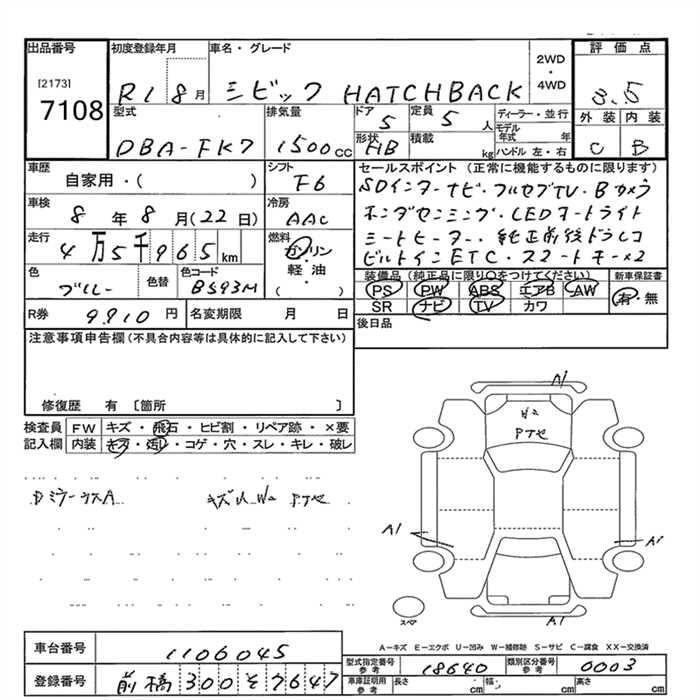 出品番号 初度登録年月 車名・グレード 2WD・4WD 評価点
[2173]
7108
R1 8月 シビック HATCHBACK 3.5
型式 排気量 ドア 定員 ディーラー・並行 外装 内装
DBA-FK7 1500cc 5 5人 モデル年式 年
形状 積載 ハンドル 左・右
HB kg C B
車歴 シフト セールスポイント(正常に機能するものに限ります)
自家用・( ) F6 SDインターナビ・フルセグTV・Bカメラ
車検 冷房 ホンダセンシング・LEDオートライト
8年8月(22日) AAC シートヒーター・純正前後ドラレコ
走行 燃料 ビルトインETC・スマートキー×2
4万5千965km ガソリン・軽油・( )
色 色替 色コード 装備品(純正品に限り○をつけてください) 新車保証書
ブルー B593M PS PW ABS エアB AW 有・無
SR ナビ TV カワ
R券 9,910円 名変期限 月 日 後日品
注意事項申告欄(不具合内容等は具体的に記入して下さい)
修復歴 有 [箇所 ]
検査員 FW キズ・飛石・ヒビ割・リペア跡・×要
記入欄 内装 キズ・汚レ・コゲ・穴・スレ・キレ・破レ
A1
W2
A1
A1
A1
スペア
A-キズ E-エクボ U-凹み W-補修跡 S-サビ C-腐食 XX-交換済
車台番号 1106045
型式指定番号 参考 18640 類別区分番号 参考 0003
登録番号 前橋 300 そ 7647
車庫証明用 参考 長さ cm 幅 cm 高さ cm